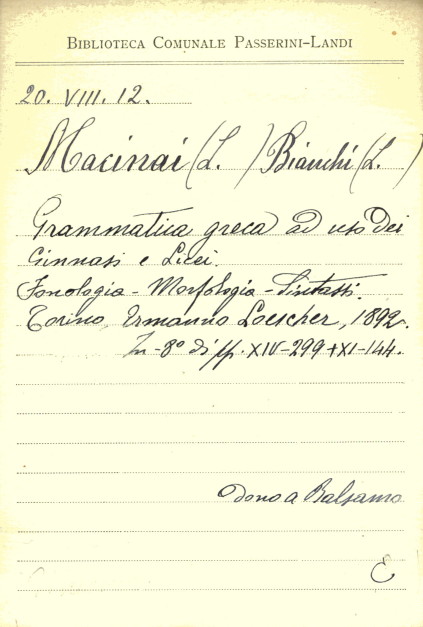 BIBLIOTECA COMUNALE PASSERINI-LANDI
20. VIII. 12.
Macinai (L. ) Bianchi (L. )
Grammatica greca ad uso dei
Ginnasi e Licei.
Fonologia - Morfologia - Sintassi.
Torino, Ermanno Loescher, 1892.
In-8° di pp. XIV-299 + XI-144.
Dono a Balsamo